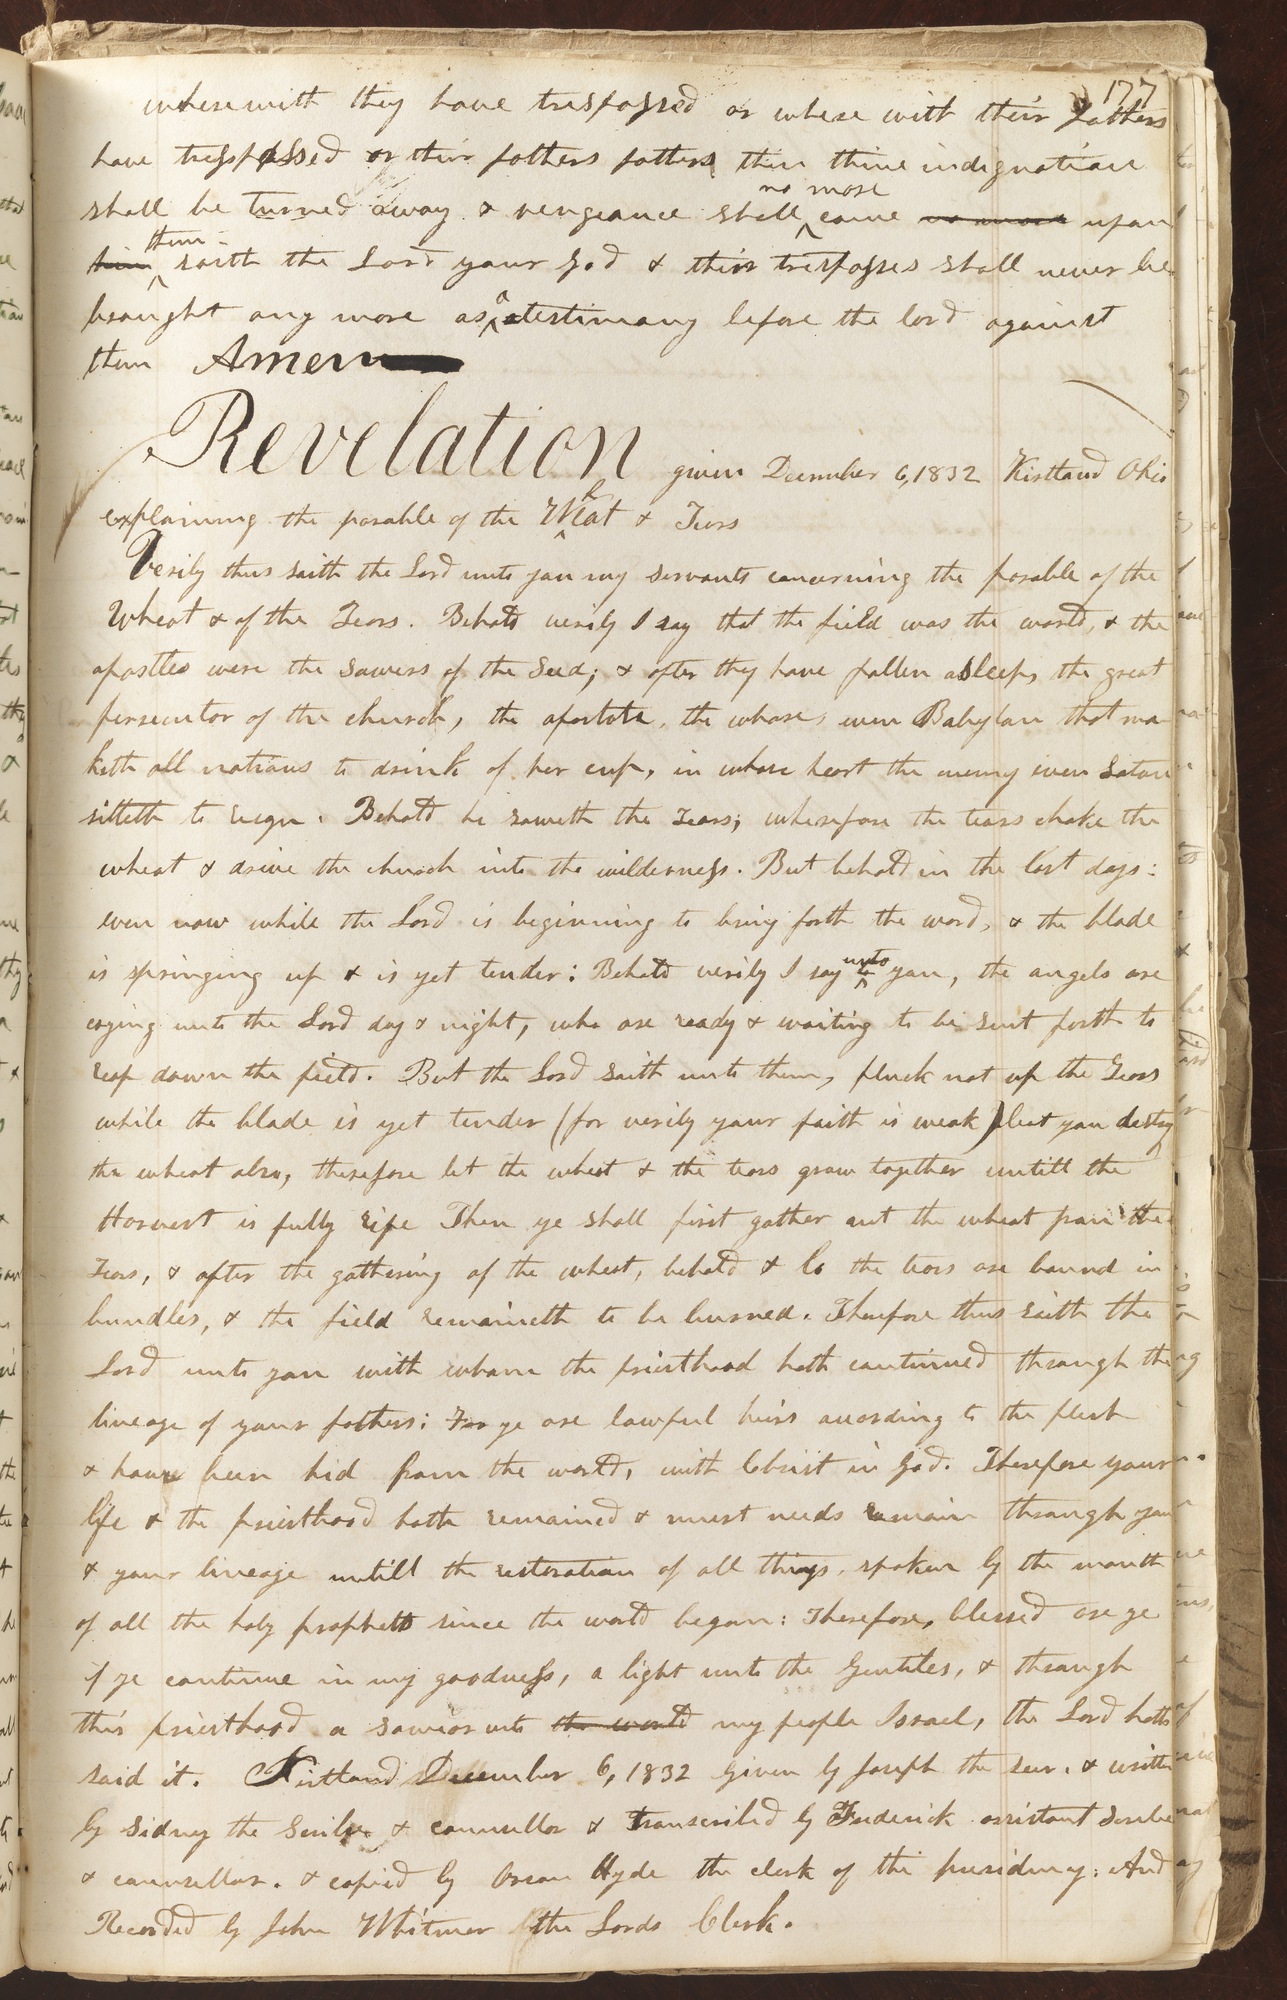 177
wherewith they have trespassed or where with their Fathers
have tresspassed or their fathers fathers then thine indignation
shall be turned away & vengeance shall no more come no more upon
him them saith the Lord your God & their trespasses shall never be
brought any more as a testimony before the lord against
them Amen
Revelation given December 6, 1832 Kirtland Ohio
explaining the parable of the Wheat & Tears
Verily thus saith the Lord unto you my servants concerning the parable of the
Wheat & of the Tears. Behold verily I say that the field was the world, & the
apostles were the sowers of the seed; & after they have fallen asleep, the great
persecutor of the church, the apostate, the whore, even Babylon that ma-
keth all nations to drink of her cup, in whose heart the enemy even Satan
sitteth to reign. Behold he soweth the Tears; wherefore the tears choke the
wheat & drive the church into the wilderness. But behold in the last days:
even now while the Lord is beginning to bring forth the word, & the blade
is springing up & is yet tender: Behold verily I say unto you, the angels are
crying unto the Lord day & night, who are ready & waiting to be sent forth to
reap down the field. But the Lord saith unto them, pluck not up the Tears
while the blade is yet tender (for verily your faith is weak) lest you destroy
the wheat also, therefore let the wheat & the tears grow together untill the
Harvest is fully ripe Then ye shall first gather out the wheat from the
Tears, & after the gathering of the wheat, behold & lo the tears are bound in
bundles, & the field remaineth to be burned. Therefore thus saith the
Lord unto you with whom the priesthood hath continued through the
lineage of your fathers: For ye are lawful heirs according to the flesh
& have been hid from the world, with Christ in God. Therefore your
life & the priesthood hath remained & must needs remain through you
& your lineage untill the restoration of all things, spoken by the mouth
of all the holy prophets since the world began: Therefore, blessed are ye
if ye continue in my goodness, a light unto the Gentiles, & through
this priesthood a savior unto the world my people Israel, the Lord hath
said it. Kirtland December 6, 1832 given by Joseph the seer. & written
by Sidney the Scribe & counsellor & transcribed by Frederick assistant Scribe
& counsellor. & copied by Orson Hyde the clerk of the presidency. And
Recorded by John Whitmer the Lords Clerk.